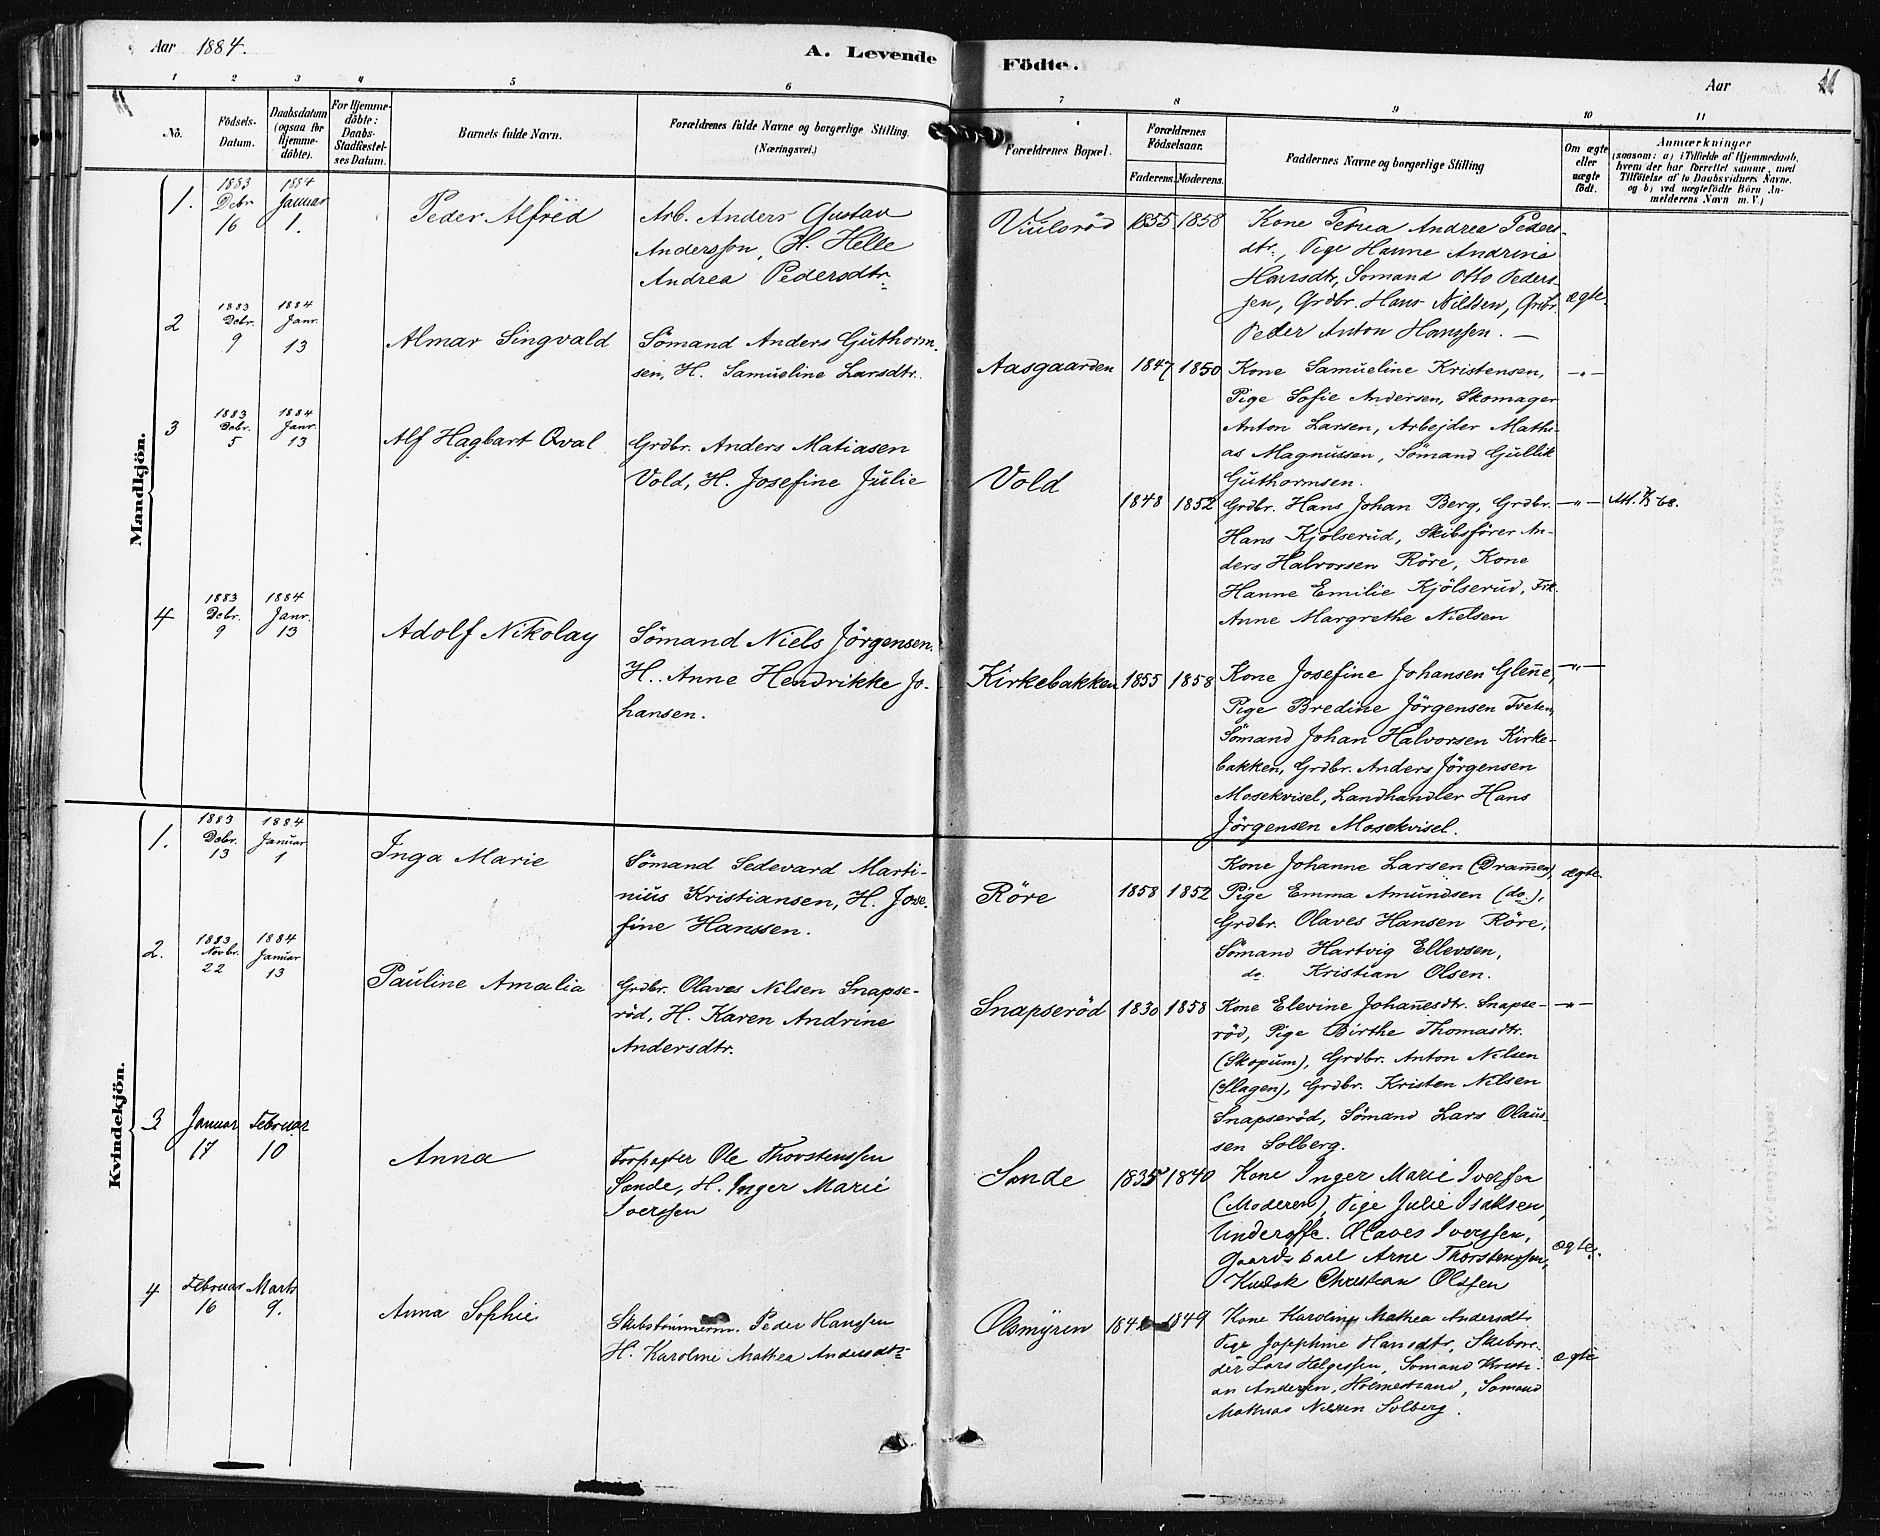 Aar 1884.
A. Levende Födte.
Aar
1 2 3 4 5 6 7 8 9 10 11
No.
Födsels-Datum.
Daabsdatum (ogsaa for Hjemme-döbte).
For Hjemme-döbte: Daabs-Stadfæstel-ses Datum.
Barnets fulde Navn.
Forældrenes fulde Navne og borgerlige Stilling. (Næringsvei.)
Forældrenes Bopæl.
Forældrenes Födselsaar.
Faderens. Moderens.
Faddernes Navne og borgerlige Stilling
Om ægte eller uægte født.
Anmærkninger
(saasom: a) i Tilfælde af Hjemmedaab, hvem der har forrettet samme, med Tilföielse af to Daabsvidners Navne, og b) ved uægtefödte Börn An-melderens Navn m. V.)
Mandkjön.
1. 1883 Debr 16 1884 Januar 1.
Peder Alfred
Arb. Anders Gustav
Anderssen, H. Helle
Andrea Pedersdtr
1855 1858
Kone Petrea Andrea Peders-
dtr., Pige Hanne Andrine
Hansdtr, Sömand Otto Peders-
sen, Grdbr. Hans Nilsen, Grdbr.
Peder Anton Hanssen. —
ægte
2 1883 Debr. 9 1884 Janr. 13
Almar Singvald
Sömand Anders Guthorm-
sen, H. Samueline Larsdtr.
Aasgaarden
1847 1850
Kone Samueline Kristensen,
Pige Sofie Andersen, Skomager
Anton Larsen, Arbejder Mathi-
as Magnussen, Sömand Gullik
Guthormsen.
—"—
3 1883 Debr. 5 1884 Janr. 13
Alf Hagbart Qval
Grdbr. Anders Matiasen
Vold, H. Josefine Julie
Vold
1848 1852
Grdbr. Hans Johan Berg, Grdbr.
Hans Kjölserud, Skibsförer An-
ders Halvorsen Röre, Kone
Hanne Emilie Kjölserud, Frk.
Anne Margrethe Nielsen
—"—
4 1883 Debr. 9 1884 Janr. 13
Adolf Nikolay
Sömand Niels Jörgensen.
H. Anne Hendrikke Jo-
hansen.
Kirkebakken
1855 1858
Kone Josefine Johansen Glenne,
Pige Bredine Jörgensen Tveten,
Sömand Johan Halvorsen Kirke-
bakken, Grdbr. Anders Jörgensen
Mosekvisel, Landhandler Hans
Jörgensen Mosekvisel.
—"—
Kvindekjön.
1. 1883 Debr. 13 1884 Januar 1
Inga Marie
Sömand Sedevard Marti-
nius Kristiansen, H. Jose-
fine Hanssen.
Röre
1858 1852
Kone Johanne Larsen (Drammen),
Pige Emma Amundsen (do.),
Grdbr. Olaves Hansen Röre,
Sömand Hartvig Ellevsen,
do. Kristian Olsen.
ægte
2. 1883 Novbr. 22 1884 Januar 13
Pauline Amalia
Grdbr. Olaves Nilsen Snapse-
röd, H. Karen Andrine
Andersdtr.
Snapseröd
1830 1858
Kone Elevine Johannesdtr. Snapse-
röd, Pige Birthe Thomasdtr.
(Skopum), Grdbr. Anton Nilsen
(Slagen), Grdbr. Kristen Nilsen
Snapseröd, Sömand Lars Olaus-
sen Solberg.
—"—
3 Januar 17 Februar 10
Anna
Forpagter Ole Thorstenssen
Sande, H. Inger Marie
Iverssen
Sande
1835 1840
Kone Inger Marie Iverssen
(Moderen), Pige Julie Isaksen,
Underoffc. Olaves Iverssen,
Arne Thorstenssen,
Christian Olssen
ægte.
4 Februar 16 Marts 9.
Anna Sophie
Skibstömmerm. Peder Hanssen
H. Karoline Mathea Andersdtr
Olsmyren
1849
Kone Karoline Mathea Andersdtr
Pige Josephine Hansdtr,
Lars Helgessen, Sömand Kristi-
an Andersen, Holmestrand, Sömand
Mathias Nilssen Solberg.
ægte